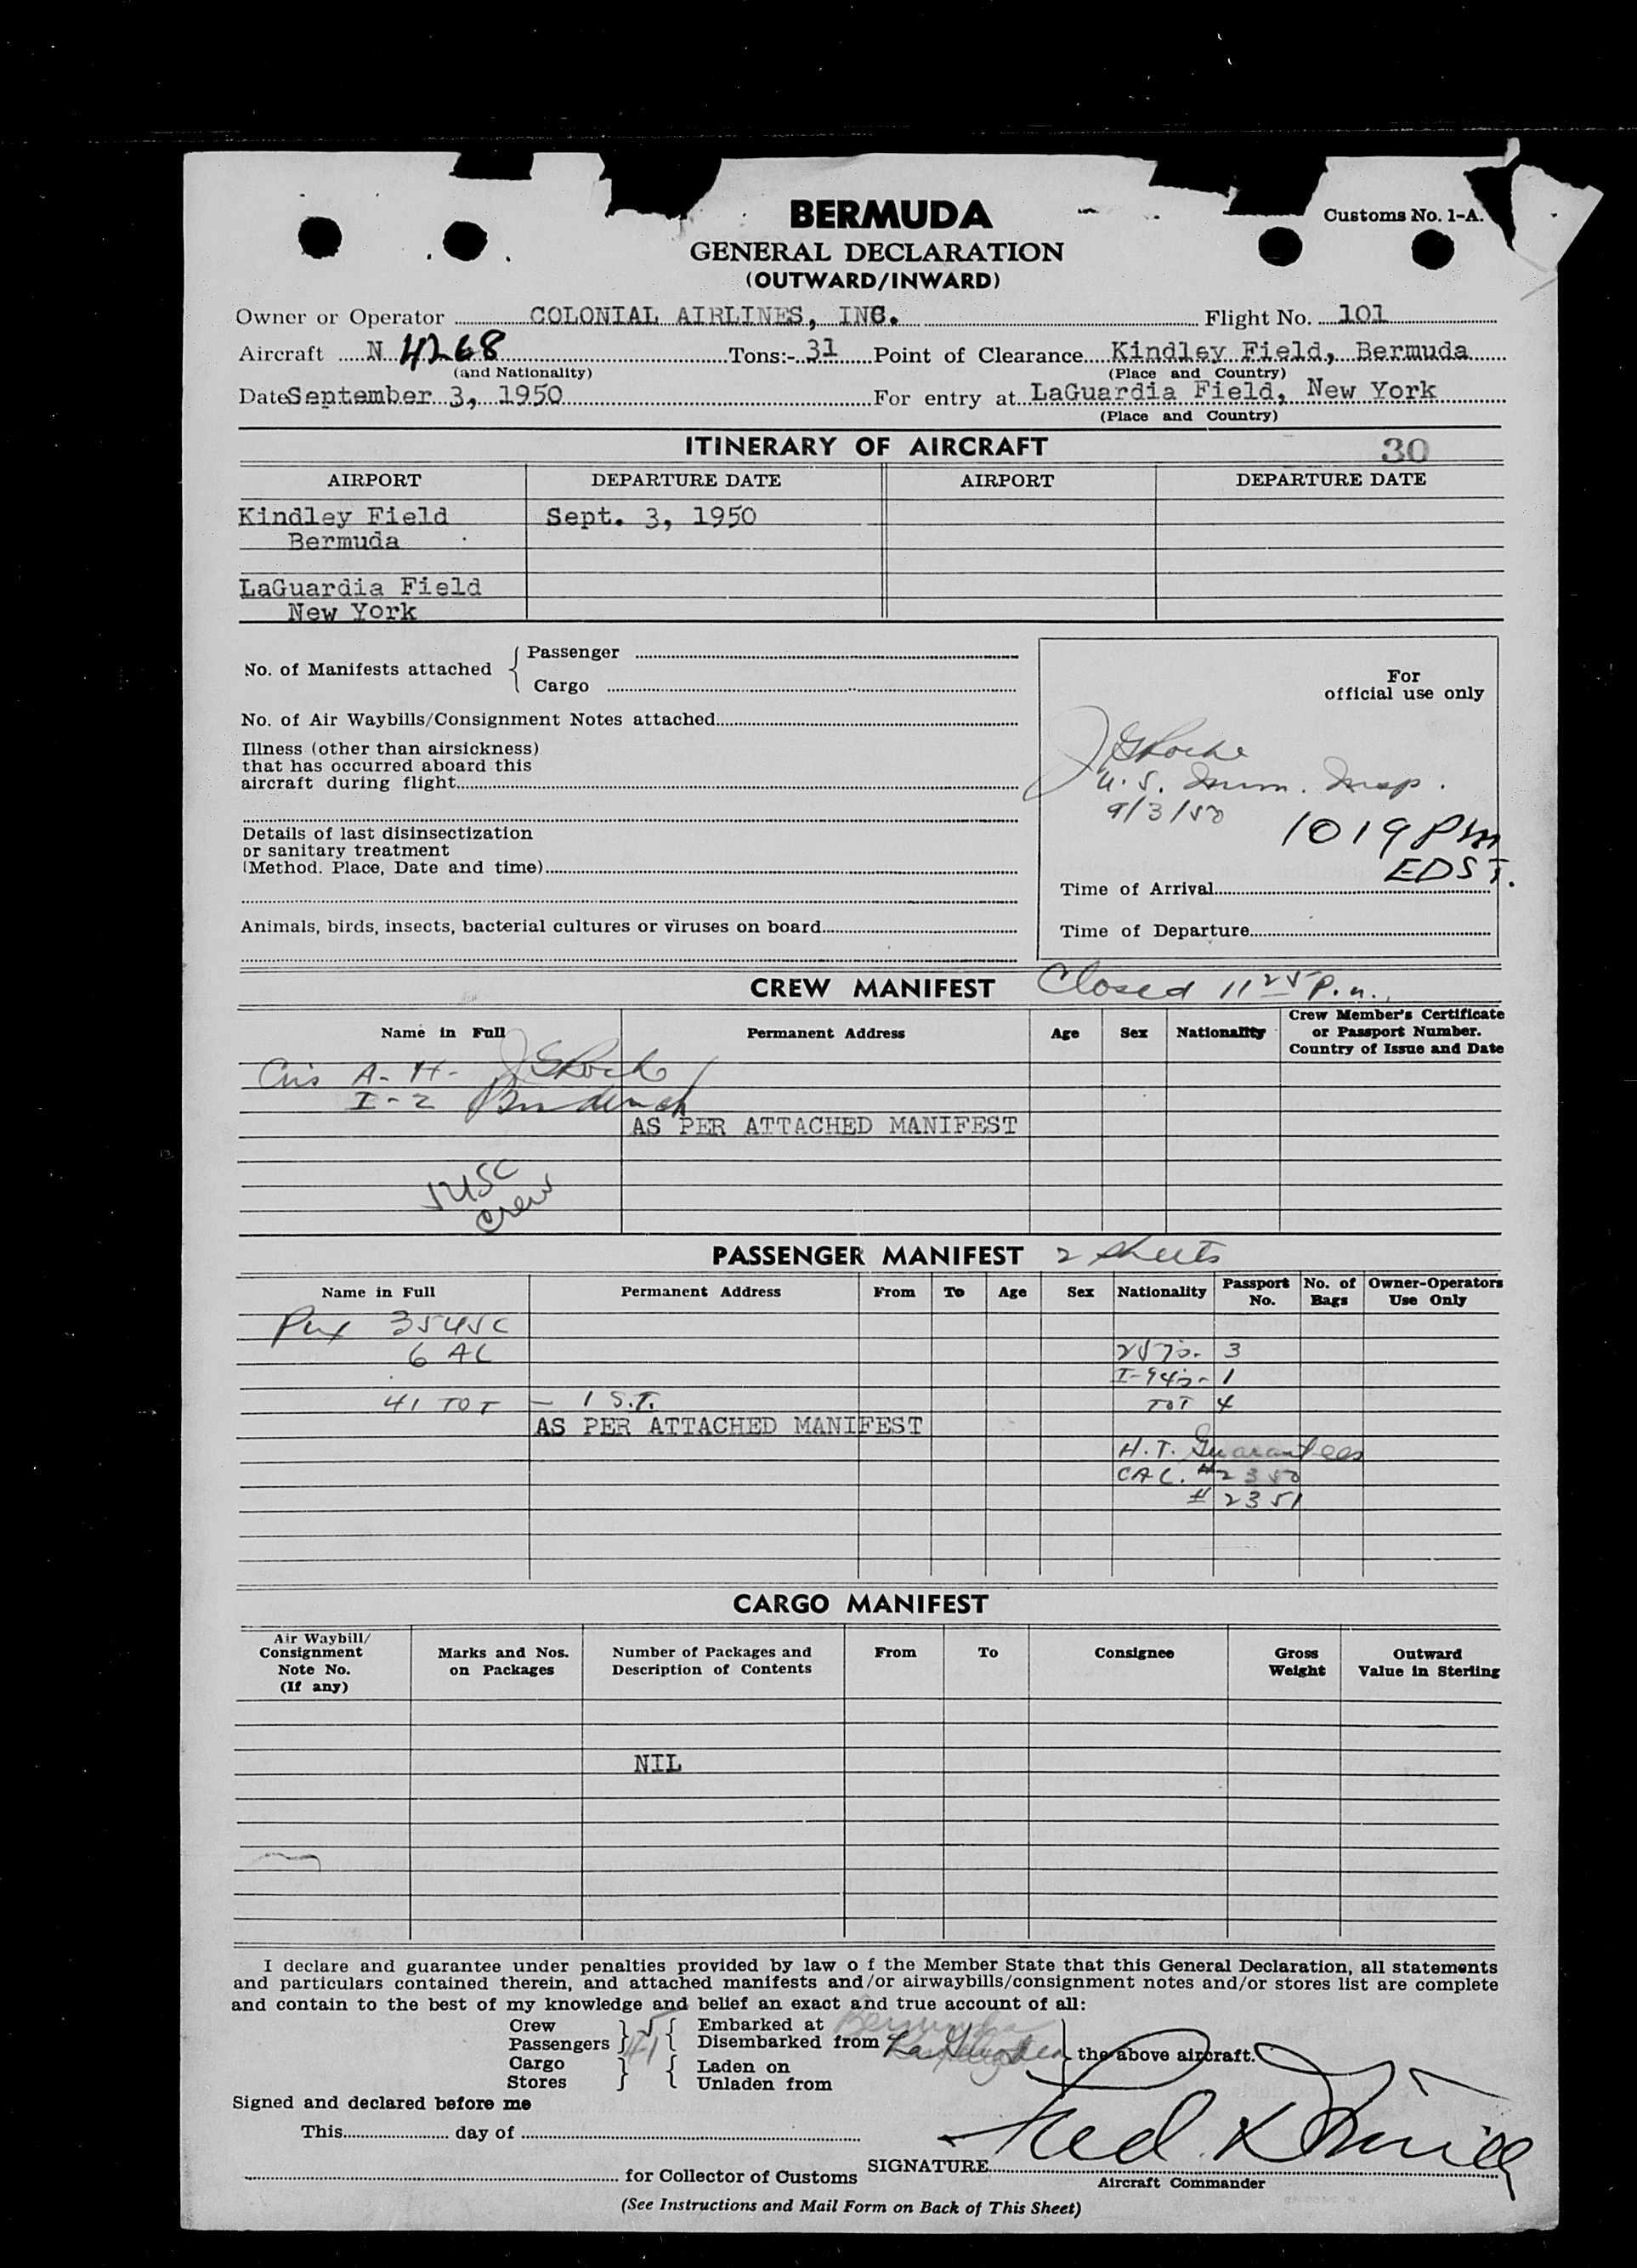 BERMUDA
Customs No. 1-A.
GENERAL DECLARATION
(OUTWARD/INWARD)
Owner or Operator COLONIAL AIRLINES, INC. Flight No. 101
Aircraft N 4268 Tons:- 31 Point of Clearance Kindley Field, Bermuda
(and Nationality) (Place and Country)
Date September 3, 1950 For entry at LaGuardia Field, New York
(Place and Country)
ITINERARY OF AIRCRAFT 30
AIRPORT DEPARTURE DATE AIRPORT DEPARTURE DATE
Kindley Field Sept. 3, 1950
Bermuda
LaGuardia Field
New York
No. of Manifests attached { Passenger
Cargo
No. of Air Waybills/Consignment Notes attached
Illness (other than airsickness)
that has occurred aboard this
aircraft during flight
Details of last disinsectization
or sanitary treatment
(Method. Place, Date and time)
Animals, birds, insects, bacterial cultures or viruses on board
For
official use only
J G Roche
U.S. Imm. Insp.
9/3/50
1019 PM
EDST.
Time of Arrival
Time of Departure
CREW MANIFEST Closed 11 25 P.m.
Name in Full Permanent Address Age Sex Nationality Crew Member's Certificate
or Passport Number.
Country of Issue and Date
A-H- J G Roche
I-2
AS PER ATTACHED MANIFEST
5 USC
crew
PASSENGER MANIFEST 2 sheets
Name in Full Permanent Address From To Age Sex Nationality Passport No. No. of Bags Owner-Operators Use Only
Pax 35 USC
6 AL 257's- 3
I-94's- 1
41 TOT - 1 S.T. TOT 4
AS PER ATTACHED MANIFEST
H.T. Guarantees
CAL. #2350
#2351
CARGO MANIFEST
Air Waybill/
Consignment
Note No.
(If any)
Marks and Nos.
on Packages
Number of Packages and
Description of Contents
From
To
Consignee
Gross
Weight
Outward
Value in Sterling
NIL
I declare and guarantee under penalties provided by law o f the Member State that this General Declaration, all statements
and particulars contained therein, and attached manifests and/or airwaybills/consignment notes and/or stores list are complete
and contain to the best of my knowledge and belief an exact and true account of all:
Crew } 5 { Embarked at Bermuda
Passengers } 41 { Disembarked from LaGuardia } the above aircraft.
Cargo } { Laden on
Stores } { Unladen from
Signed and declared before me
This day of
for Collector of Customs
SIGNATURE Fred K
Aircraft Commander
(See Instructions and Mail Form on Back of This Sheet)